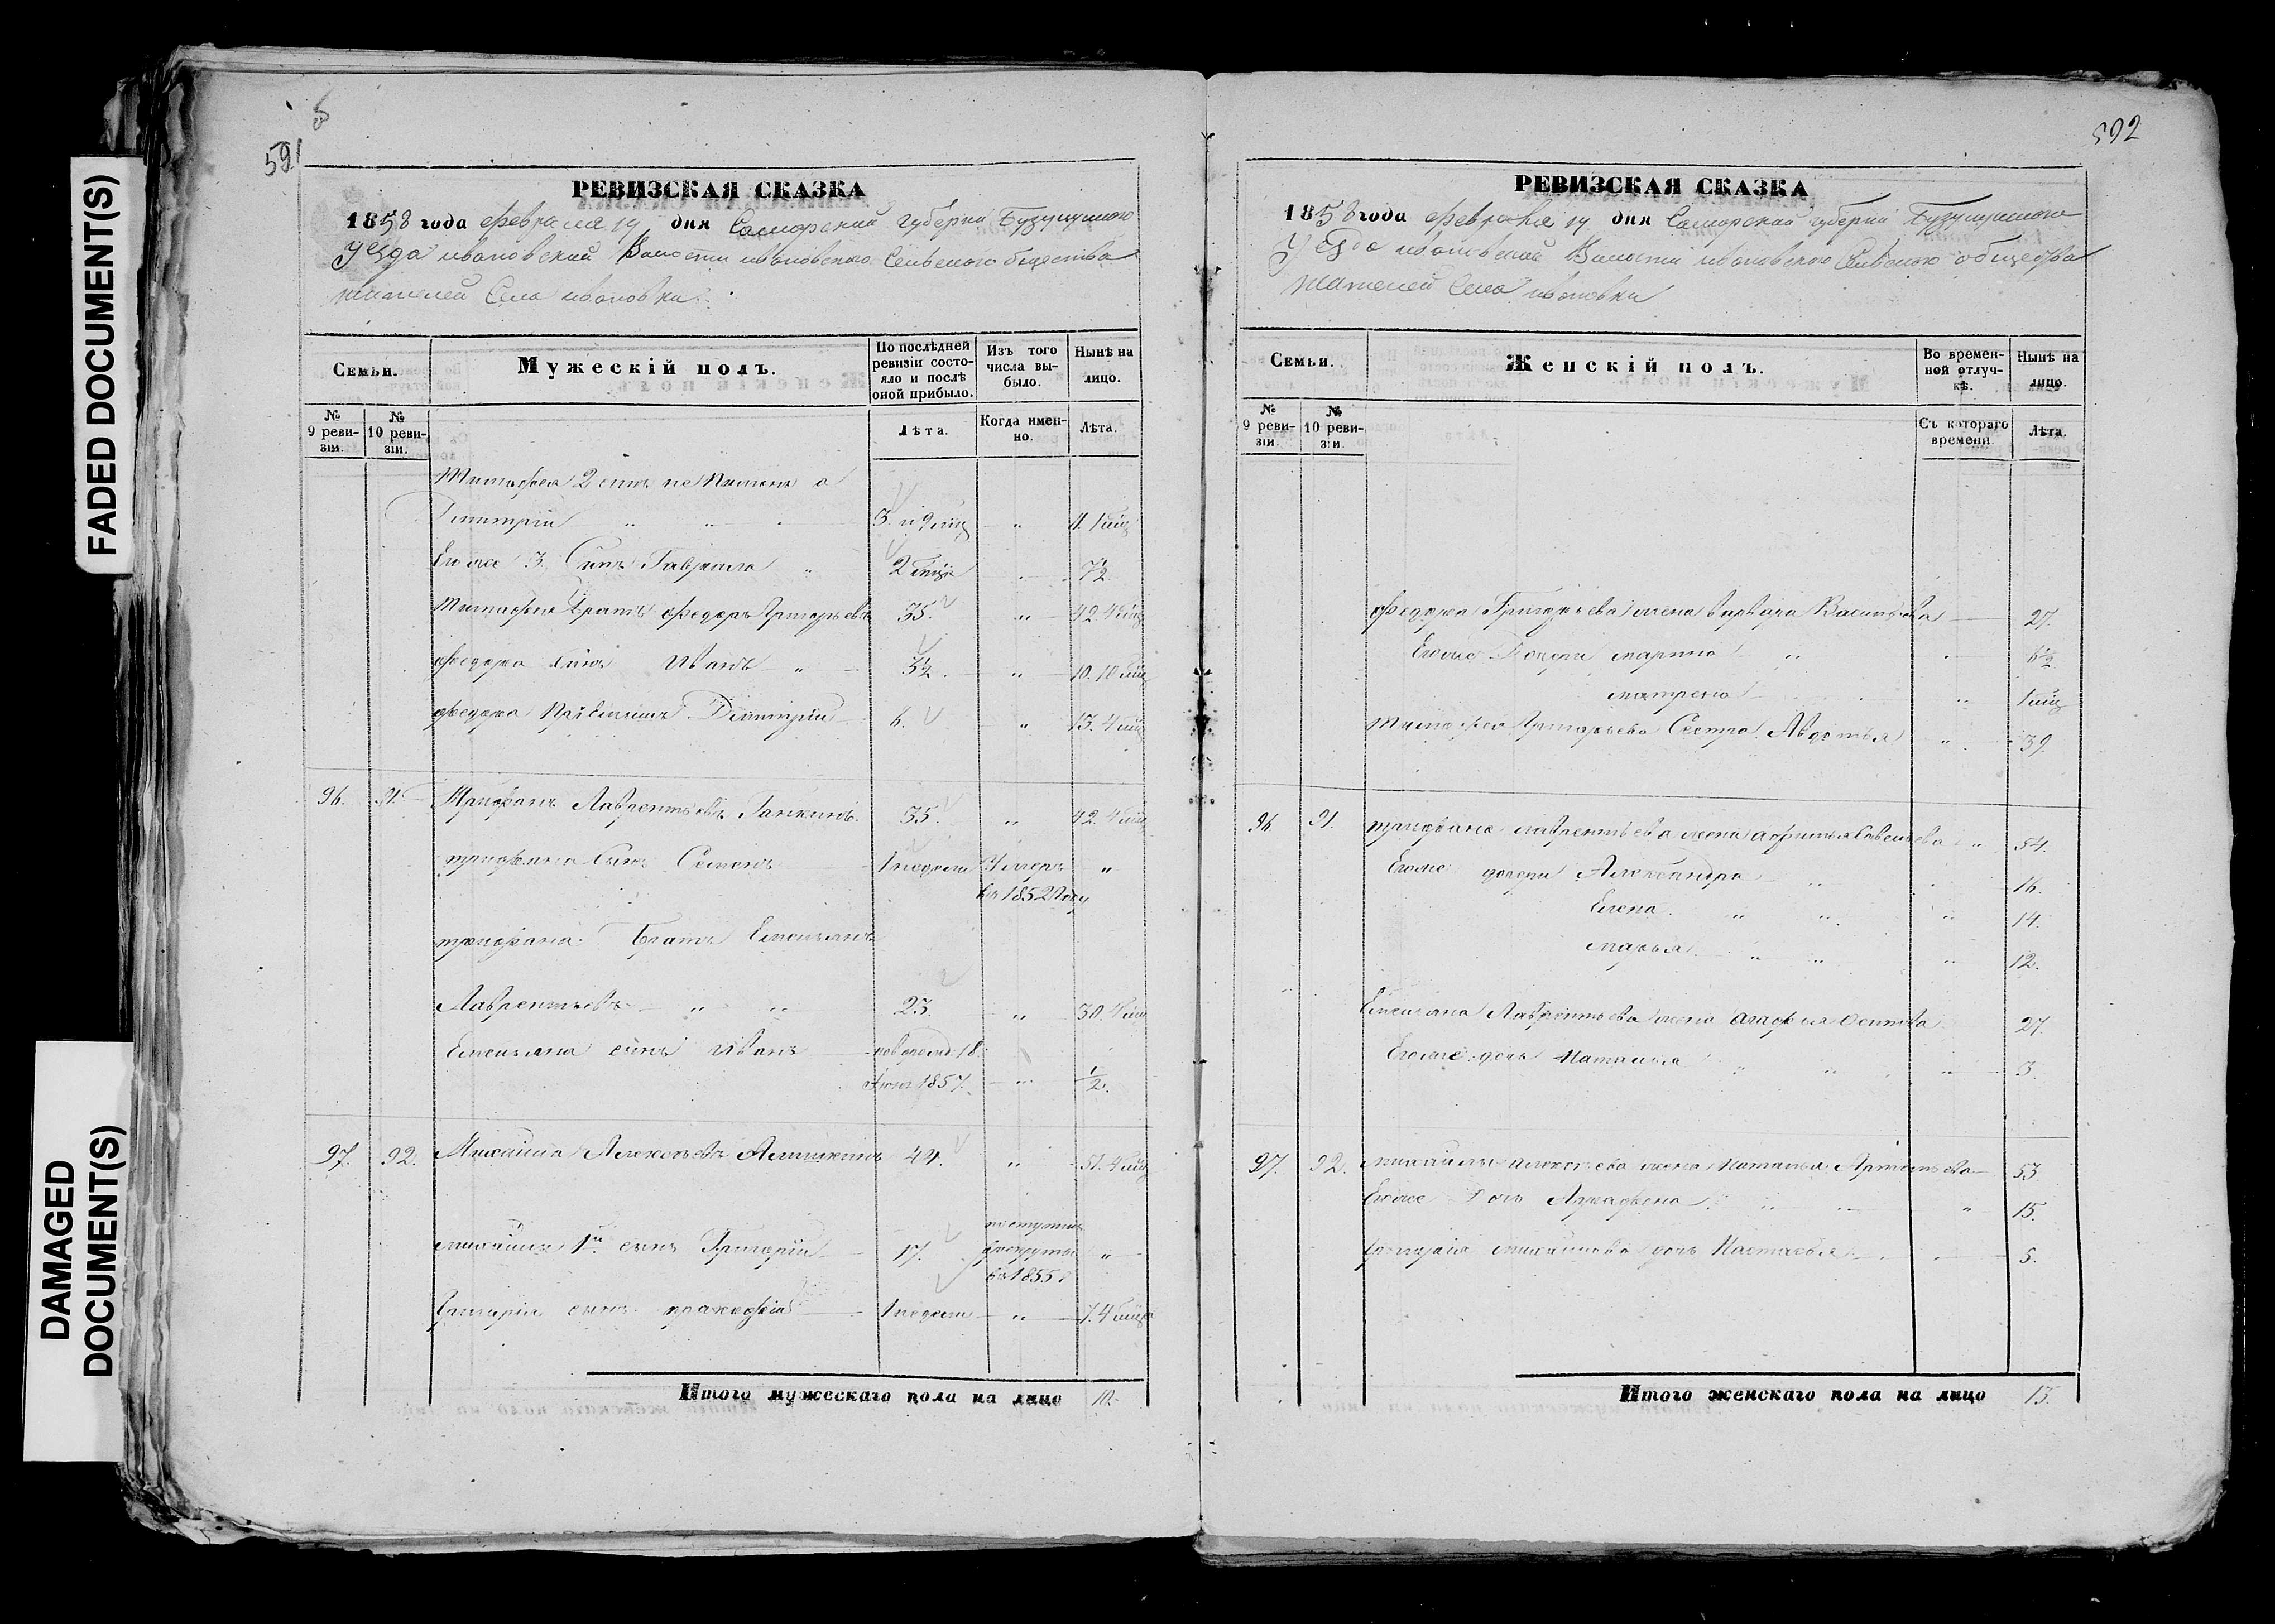 FADED DOCUMENT(S)
DAMAGED
DOCUMENT(S)
591
РЕВИЗСКАЯ СКАЗКА
1858 года февраля 19 дня Самарской губернии Бузулукского
Уезда ивановской Волости ивановского Сельского общества
жителей Села ивановки
Семьи.
Мужескій полъ.
По послѣдней
ревизіи состо-
яло и послѣ
оной прибыло.
Изъ того
числа вы-
было.
Нынѣ на
лицо.
№
9 реви-
зіи.
№
10 реви-
зіи.
Лѣта.
Когда имен-
но.
Лѣта.
Тимофея 2 сынъ
Дмитрій " " 3. и 9 мцъ " 11. 1 мцъ
Егоже 3. Сынъ Гаврила " 2 мцъ 7½
Тимофея братъ федоръ Григорьевъ 35. " 42. 4 мцъ
федора сынъ Иванъ " 3½. " 10. 10 мцъ
федора Дмитрій 6. " 13. 4 мцъ
96. 91. Трифанъ Лаврентьевъ 35. " 42. 4 мцъ
трифана сынъ Семенъ 1 недели Умеръ "
въ 1852 году
трифана Братъ Емельянъ
Лаврентьевъ " " 23. " 30. 4 мцъ
Емельяна сынъ Иванъ 18
1857. " ½.
97. 92. Михайла Алексѣевъ 44. " 51. 4 мцъ
михайлы 1й сынъ Григорій 17. поступилъ
в рекруты "
въ 1855
Григорія сынъ пракофій 1 недели " 7. 4 мцъ
Итого мужескаго пола на лицо 10.
592
РЕВИЗСКАЯ СКАЗКА
1858 года февраля 19 дня Самарской губернии Бузулукского
Уезда ивановской Волости ивановского Сельского общества
жителей Села ивановки
Семьи.
Женскій полъ.
Во времен-
ной отлуч-
кѣ.
Нынѣ на
лицо.
№
9 реви-
зіи.
№
10 реви-
зіи.
Съ котораго
времени.
Лѣта.
федора Григорьева жена варвара Васильева 27.
Егоже Дочери марина " 6½
матрена " 1 мцъ
Тимофея Григорьева Сестра Авдотья " 39.
96 91. трифана лаврентьева жена Савельева " 54.
Егоже дочери Александра " 16.
Елена " " " 14.
марья " " " 12.
Емельяна Лаврентьева жена агафья Осипова 27.
Егоже дочь Наталья " " " 3.
97. 92. михайлы алексѣева жена Наталья Артемьева 53
Егоже Дочь Аграфена " " " 15.
григорія михайлова дочь Настасья 5.
Итого женскаго пола на лицо 13.